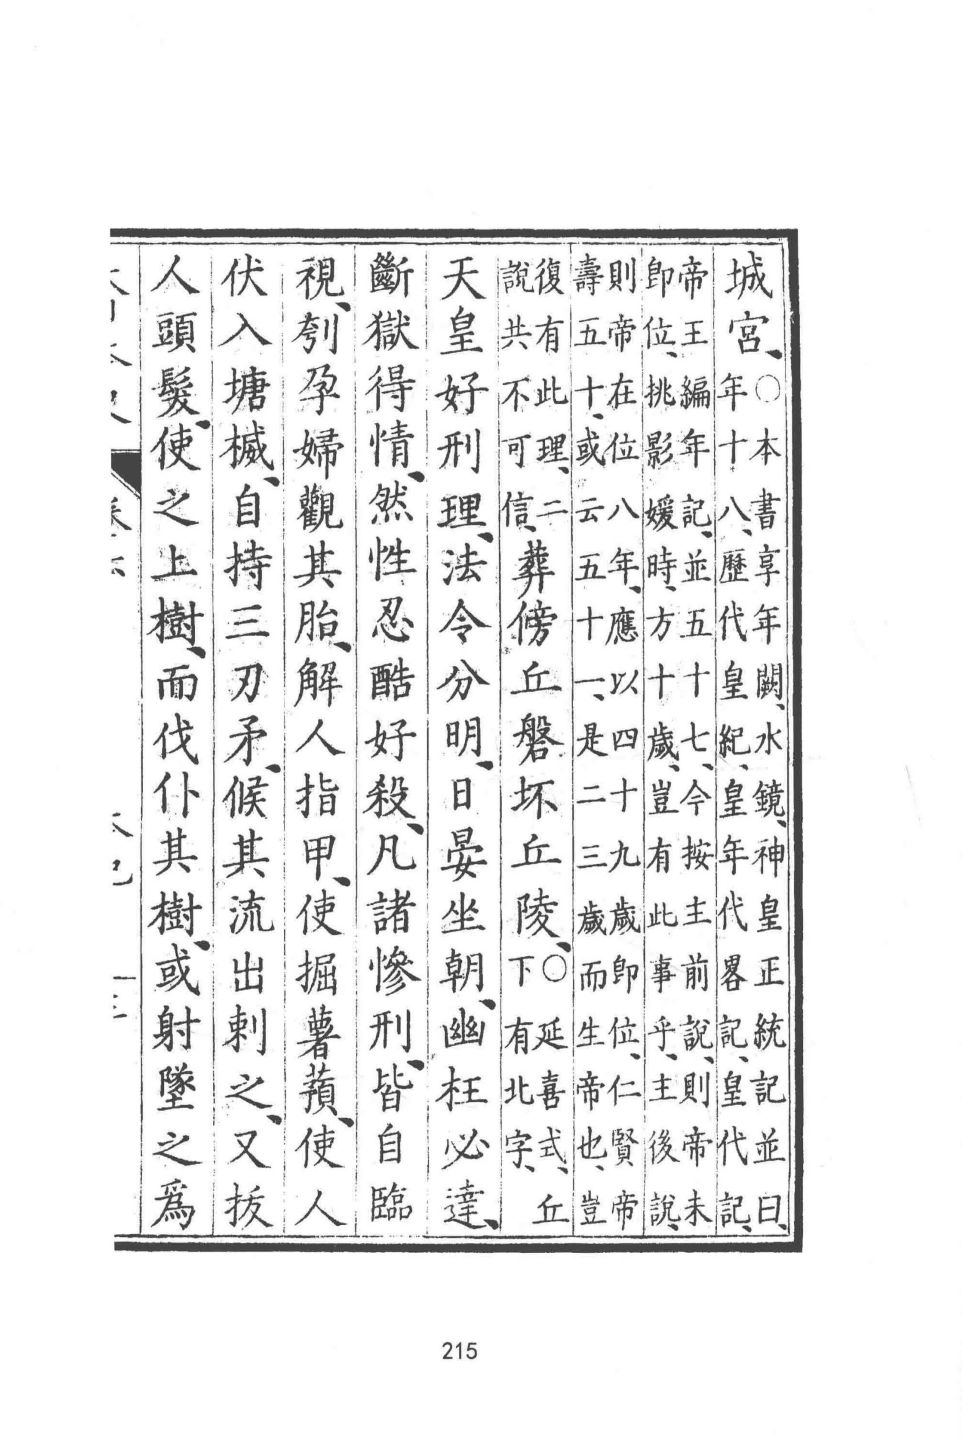 城宮、○本書享年闕、水鏡、神皇正統記並曰、
年十八、歷代皇紀、皇年代畧記、皇代記、
帝王編年記、並五十七、今按主前說、則帝未
卽位、挑影媛時、方十歲、豈有此事乎、主後說、
則帝在位八年、應以四十九歲卽位、仁賢帝
壽五十、或云五十一、是二三歲而生帝也、豈
復有此理、二
說共不可信、
葬傍丘磐坏丘陵、○延喜式、丘
下有北字、
天皇好刑理、法令分明、日晏坐朝、幽枉必達、
斷獄得情、然性忍酷好殺、凡諸慘刑、皆自臨
視、刳孕婦觀其胎、解人指甲、使掘薯蕷、使人
伏入塘楲、自持三刃矛、候其流出刺之、又拔
人頭髮、使之上樹、而伐仆其樹、或射墜之爲
215